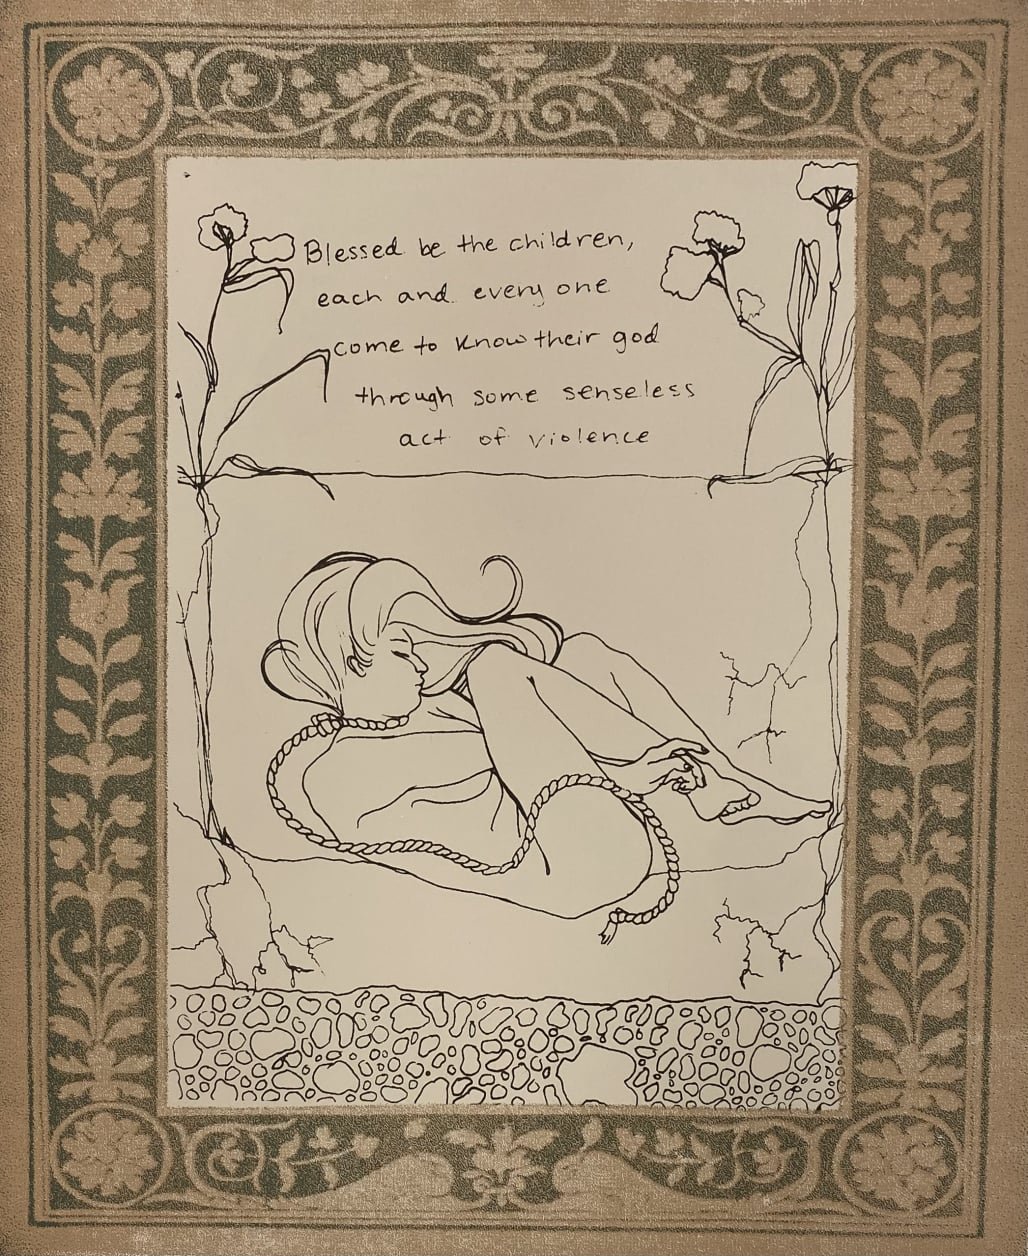 Blessed be the children,
each and every one
come to know their god
through some senseless
act of violence